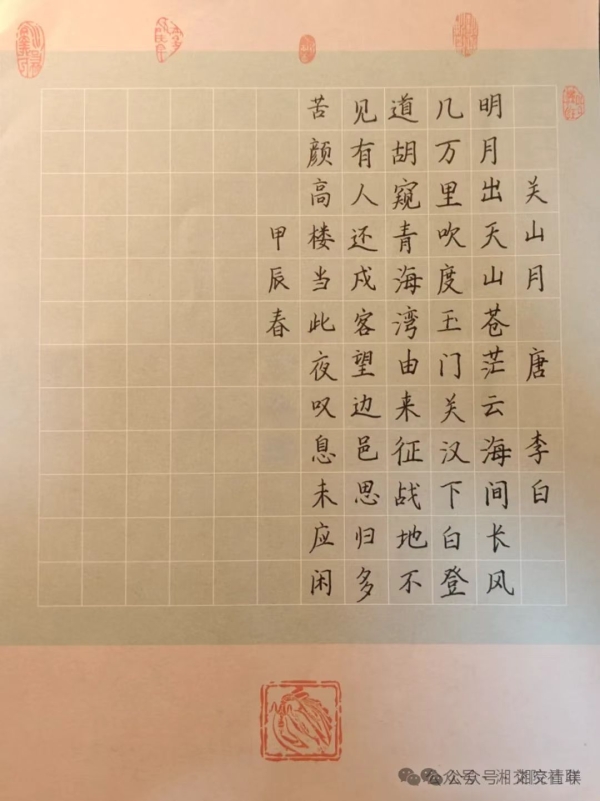 关山月 唐 李白
明月出天山苍茫云海间长风
几万里吹度玉门关汉下白登
道胡窥青海湾由来征战地不
见有人还戍客望边邑思归多
苦颜高楼当此夜叹息未应闲
甲辰春
公众号